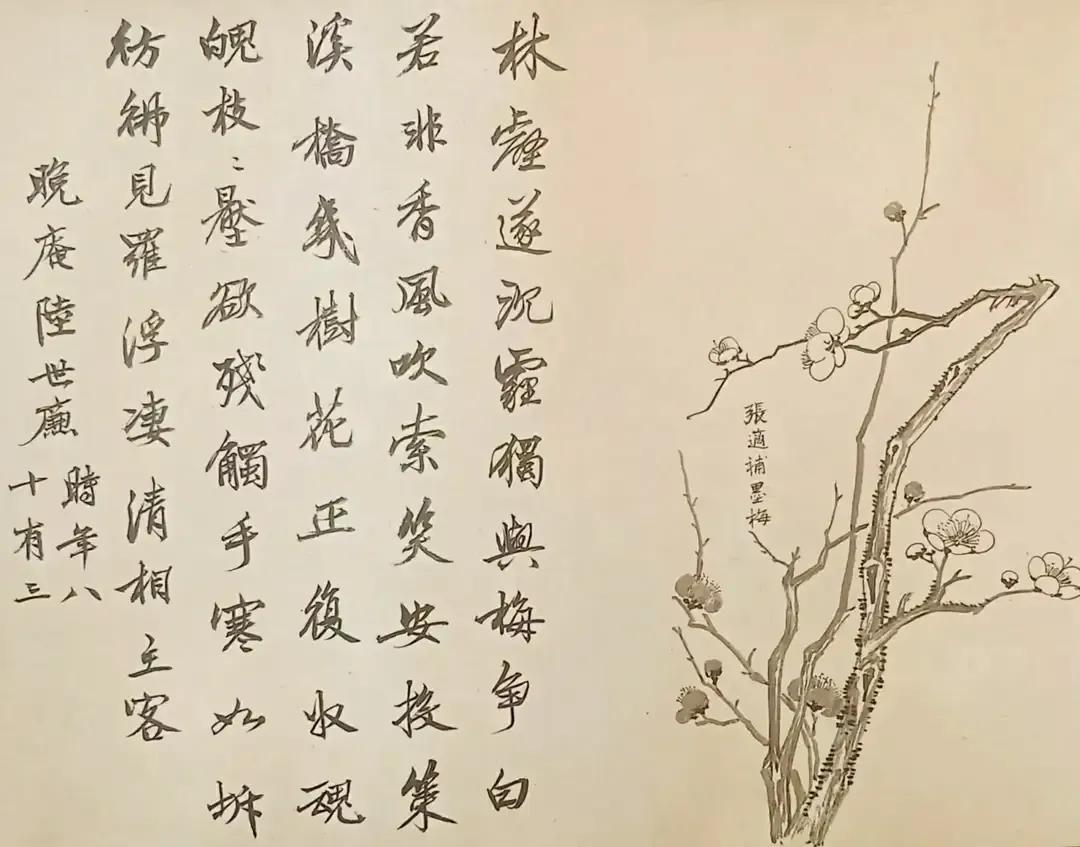 張適補墨梅
林壑遂沉霾獨與梅争白
若非香風吹索笑安投策
溪橋幾樹花正復収魂
魄枝〻壓欲殘觸手寒如拆
彷彿見羅浮凄清相主客
晚庵陸世廉
時年八
十有三